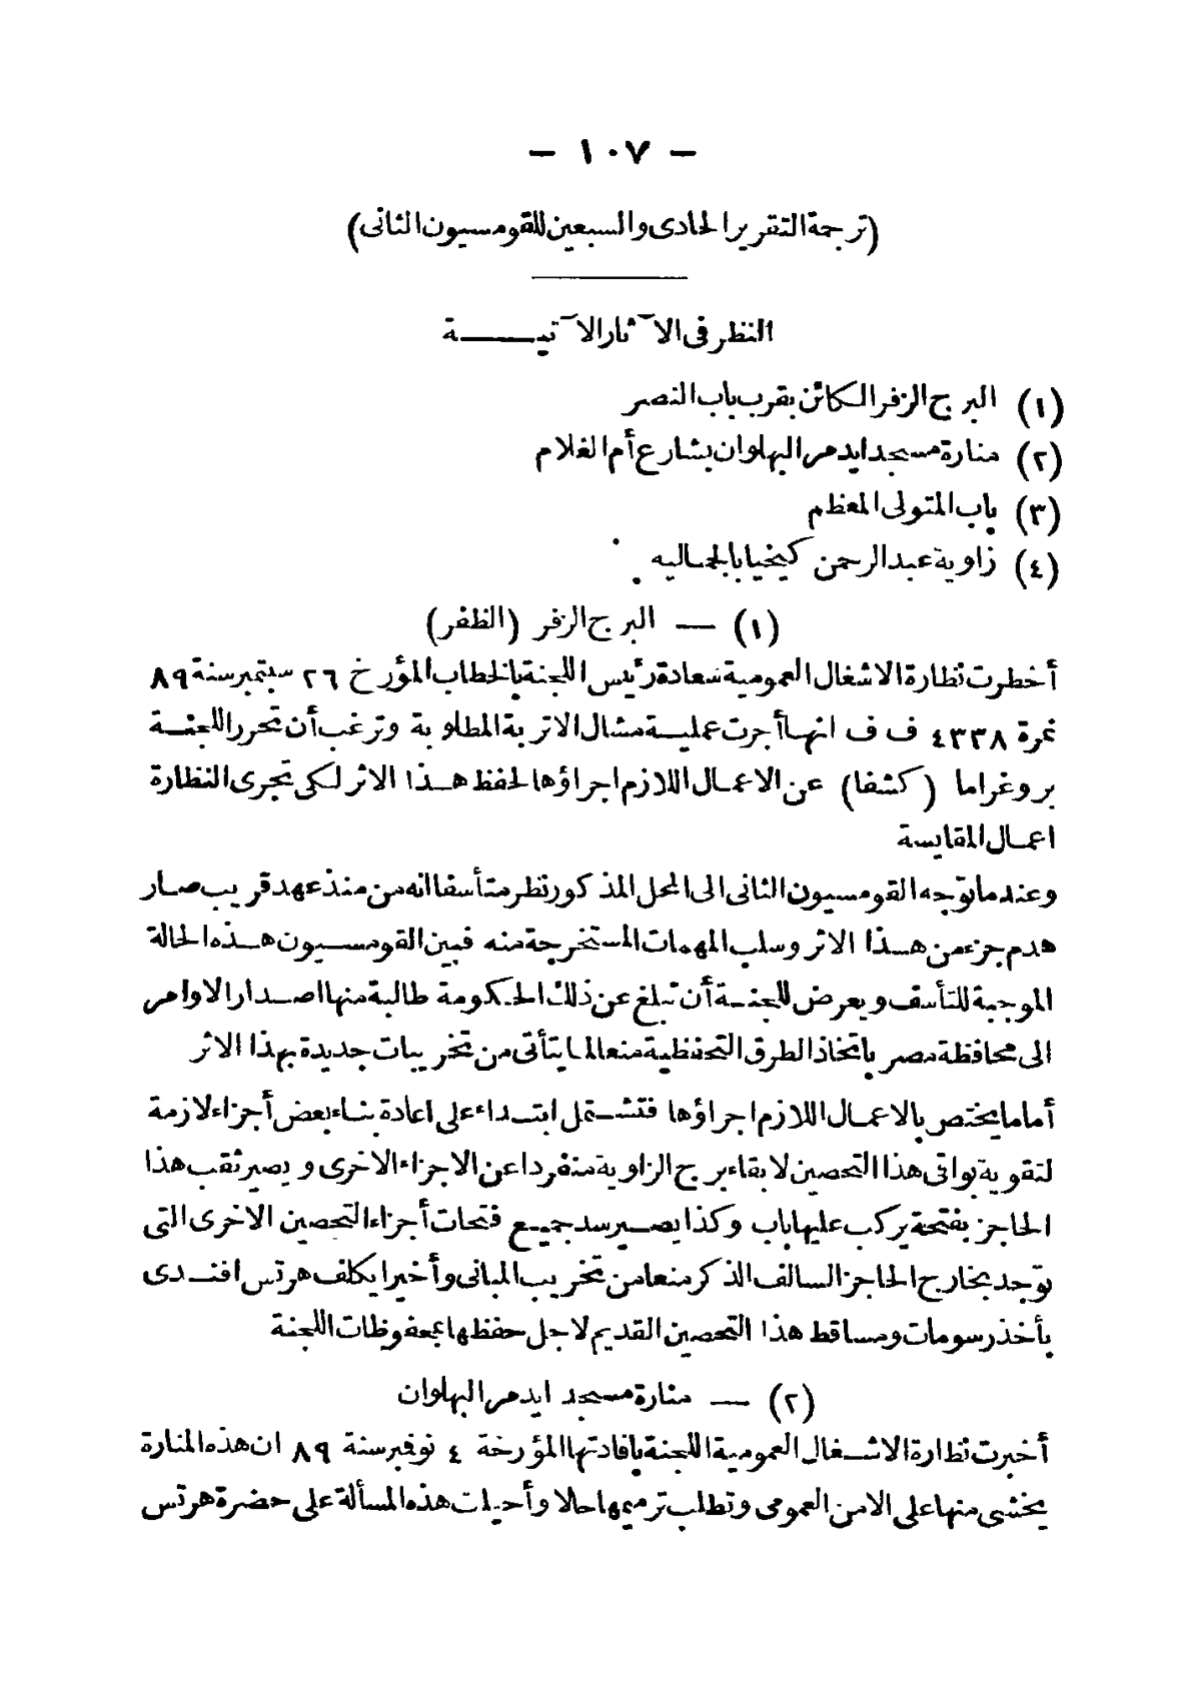 — ١٠٧ —
(ترجمة التقرير الحادى والسبعين للقومسيون الثانى)
النظر فى الآثار الآتيـــة
(١) البرج الزفر الكائن بقرب باب النصر
(٢) منارة مسجد ايدمر البهلوان بشارع أم الغلام
(٣) باب المتولى المعظم
(٤) زاوية عبد الرحمن كيخيا بالجماليه
(١) — البرج الزفر (الظفر)
أخطرت نظارة الاشغال العمومية سعادة رئيس اللجنة بالخطاب المؤرخ ٢٦ سبتمبر سنة ٨٩
نمرة ٤٣٣٨ ف ف انها أجرت عملية مشال الاتربة المطلوبة وترغب أن تحرر اللجنة
بروغراما (كشفا) عن الاعمال اللازم اجراؤها لحفظ هذا الاثر لكى تجرى النظارة
اعمال المقايسة
وعندما توجه القومسيون الثانى الى المحل المذكور نظر متأسفا انه من منذ عهد قريب صار
هدم جزء من هذا الاثر وسلب المهمات المستخرجة منه فبين القومسيون هذه الحالة
الموجبة للتأسف ويعرض للجنة أن تبلغ عن ذلك الحكومة طالبة منها اصدار الاوامر
الى محافظة مصر باتخاذ الطرق التحفظية منعا لما يتأتى من تخريبات جديدة بهذا الاثر
أما ما يختص بالاعمال اللازم اجراؤها فتشتمل ابتداء على اعادة بناء بعض أجزاء لازمة
لتقوية بواقى هذا التحصين لابقاء برج الزاوية منفردا عن الاجزاء الاخرى ويصير ثقب هذا
الحاجز بفتحة يركب عليها باب وكذا يصير سد جميع فتحات أجزاء التحصين الاخرى التى
توجد بخارج الحاجز السالف الذكر منعا من تخريب المبانى وأخيرا يكلف هرتس افندى
بأخذ رسومات ومساقط هذا التحصين القديم لاجل حفظها بمحفوظات اللجنة
(٢) — منارة مسجد ايدمر البهلوان
أخبرت نظارة الاشغال العمومية اللجنة بافادتها المؤرخة ٤ نوفمبر سنة ٨٩ ان هذه المنارة
يخشى منها على الامن العمومى وتطلب ترميمها حالا وأحيلت هذه المسألة على حضرة هرتس